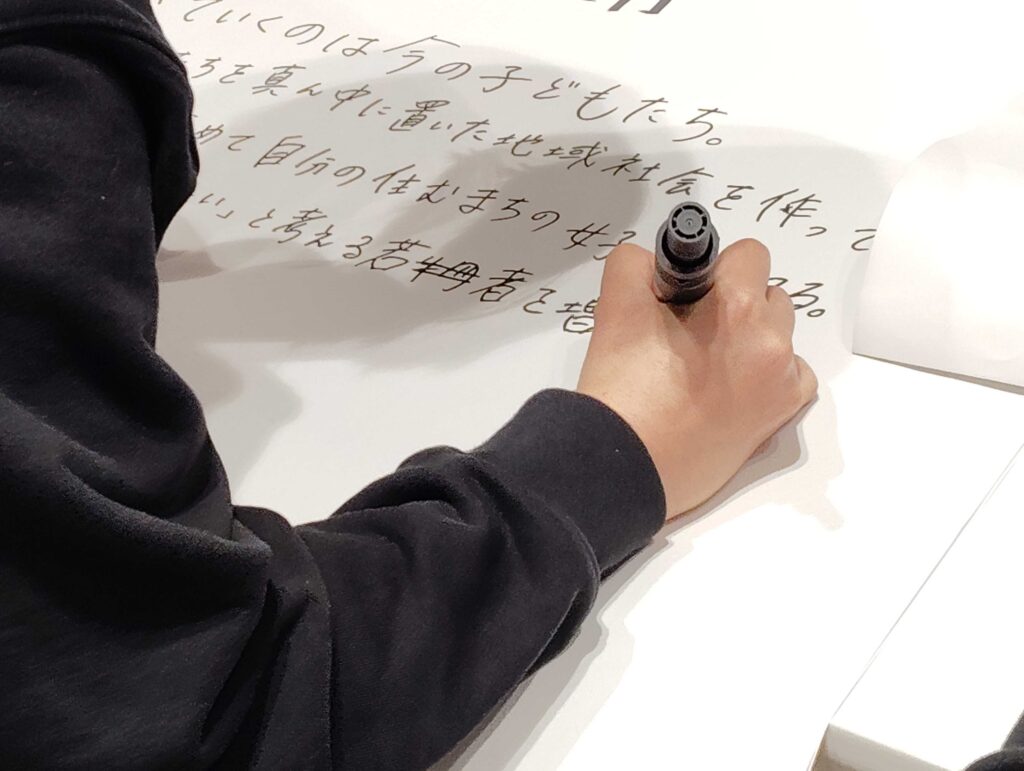 ていくのは今の子どもたち。
ちを真ん中に置いた地域社会を作って
めて自分の住むまちの好
い」と考える若者を増 る。